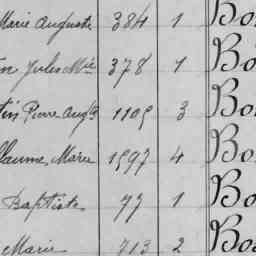 Marie Auguste 384 1 Bo
Jules Mie 378 1 Bo
Pierre Augte 1105 3 Bo
laume Marie 1597 4 Bo
Baptiste 77 1 Bo
Marie 713 2 Bo